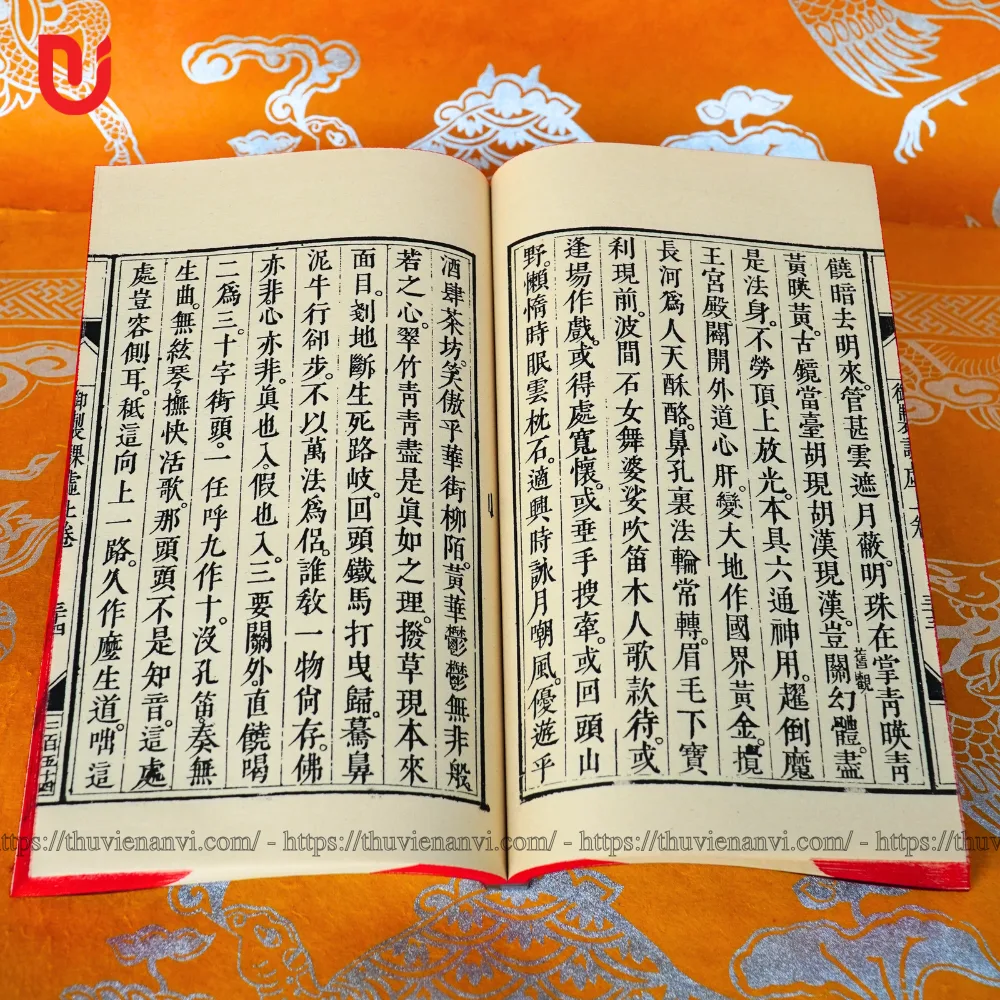 饒暗去明來。管甚雲遮月蔽。明珠在掌。青暎青
黃暎黃。古鏡當臺。胡現胡。漢現漢。豈關幻體。盡
是法身。不勞頂上放光。本具六通神用。趯倒魔
王宮殿。闢開外道心肝。變大地作國界黃金。攪
長河爲人天酥酪。鼻孔裏法輪常轉。眉毛下寶
利現前。波間石女舞婆娑。吹笛木人歌款待。或
逢場作戲。或得處寬懷。或垂手搜牽。或回頭山
野。懶惰時眠雲枕石。適興時詠月嘲風。優遊乎
酒肆茶坊。笑傲乎華街柳陌。黃華鬱鬱無非般
若之心。翠竹靑靑盡是眞如之理。撥草現本來
面目。剗地斷生死路岐。回頭鐵馬打曳歸。驀鼻
泥牛行卻步。不以萬法爲侶。誰敎一物尙存。佛
亦非。心亦非。眞也入。假也入。三要關外。直饒喝
二爲三。十字街頭。一任呼九作十。沒孔笛。奏無
生曲。無絃琴。撫快活歌。那頭頭不是知音。這處
處豈容側耳。秪這向上一路。久作麽生道。咄。這
御製課虛上卷
三十四
三百五十四
https://thuvienanvi.com/ - https://thuvienanvi.com/ - https://thuvienanvi.com/